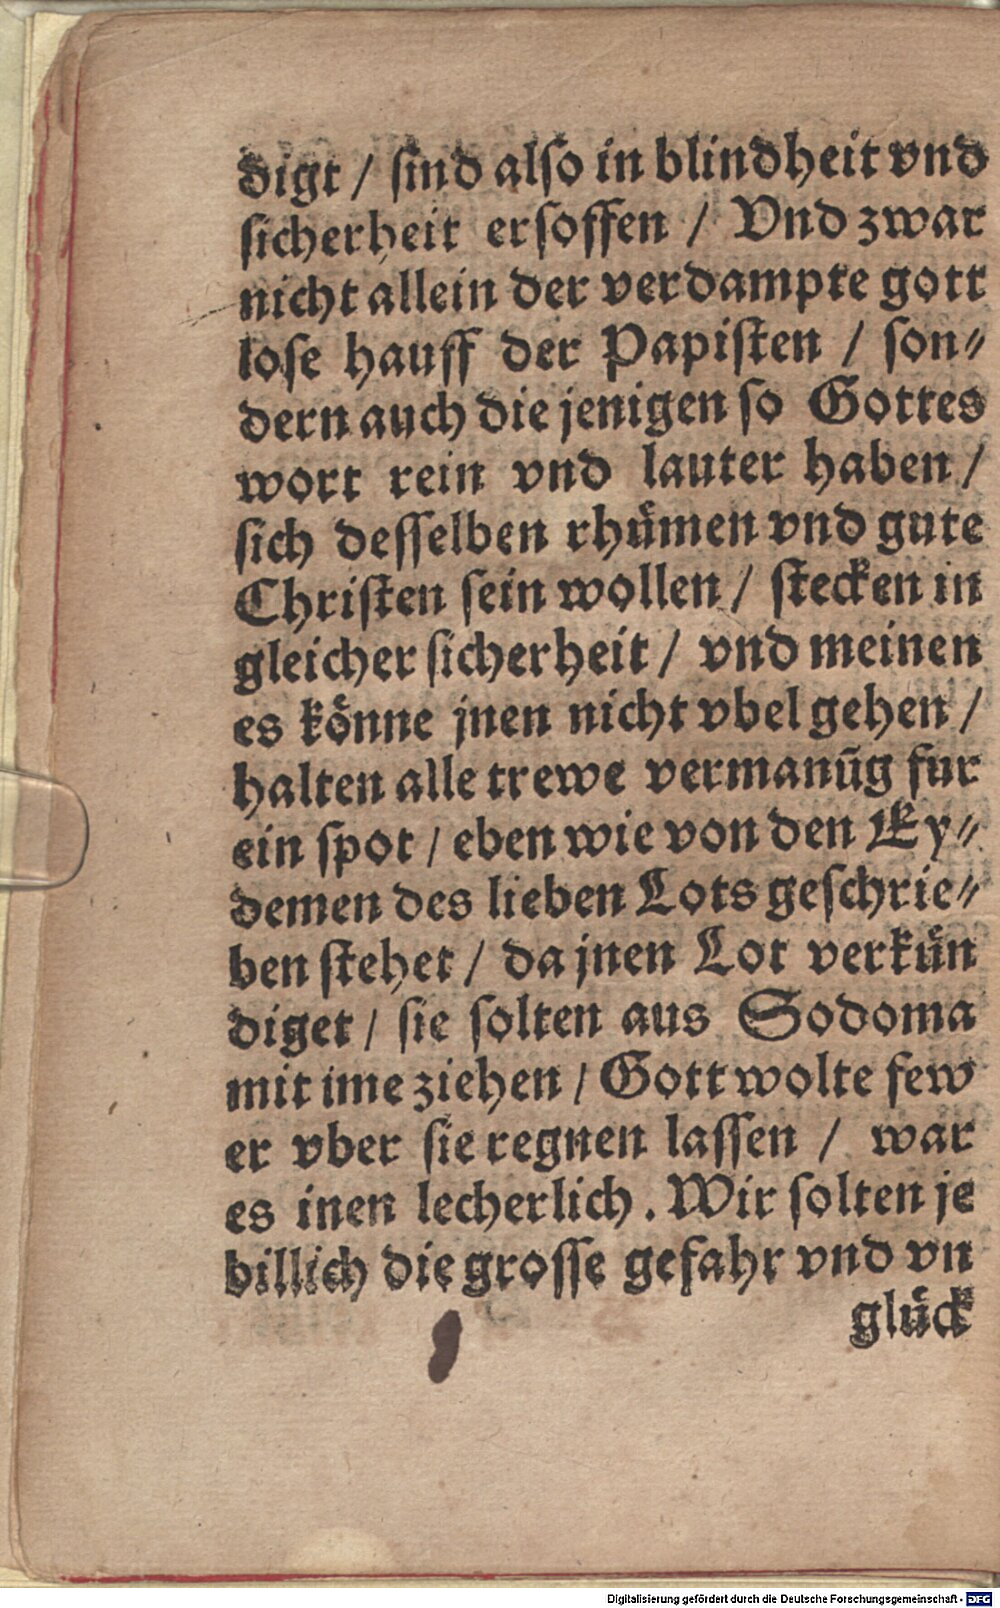 digt / sind also in blindheit vnd
sicherheit ersoffen / Vnd zwar
nicht allein der verdampte gott
lose hauff der Papisten / son⸗
dern auch die jenigen so Gottes
wort rein vnd lauter haben /
sich desselben rhuͤmen vnd gute
Christen sein wollen / stecken in
gleicher sicherheit / vnd meinen
es koͤnne jnen nicht vbel gehen /
halten alle trewe vermanūg fur
ein spot / eben wie von den Ey⸗
demen des lieben Lots geschrie⸗
ben stehet / da jnen Lot verkuͤn
diget / sie solten aus Sodoma
mit ime ziehen / Gott wolte few
er vber sie regnen lassen / war
es inen lecherlich. Wir solten je
billich die grosse gefahr vnd vn
gluͤck
Digitalisierung gefördert durch die Deutsche Forschungsgemeinschaft - DFG